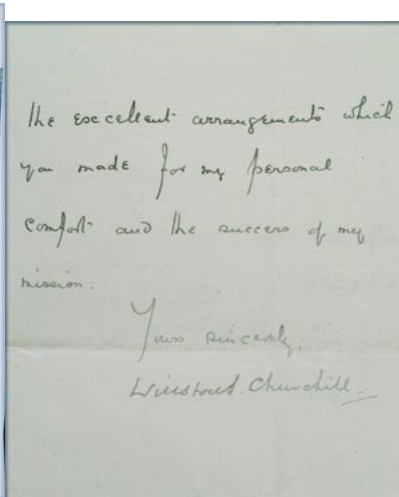 the excellent arrangements which
you made for my personal
comfort and the success of my
mission.
Yours sincerely,
Winston S. Churchill.